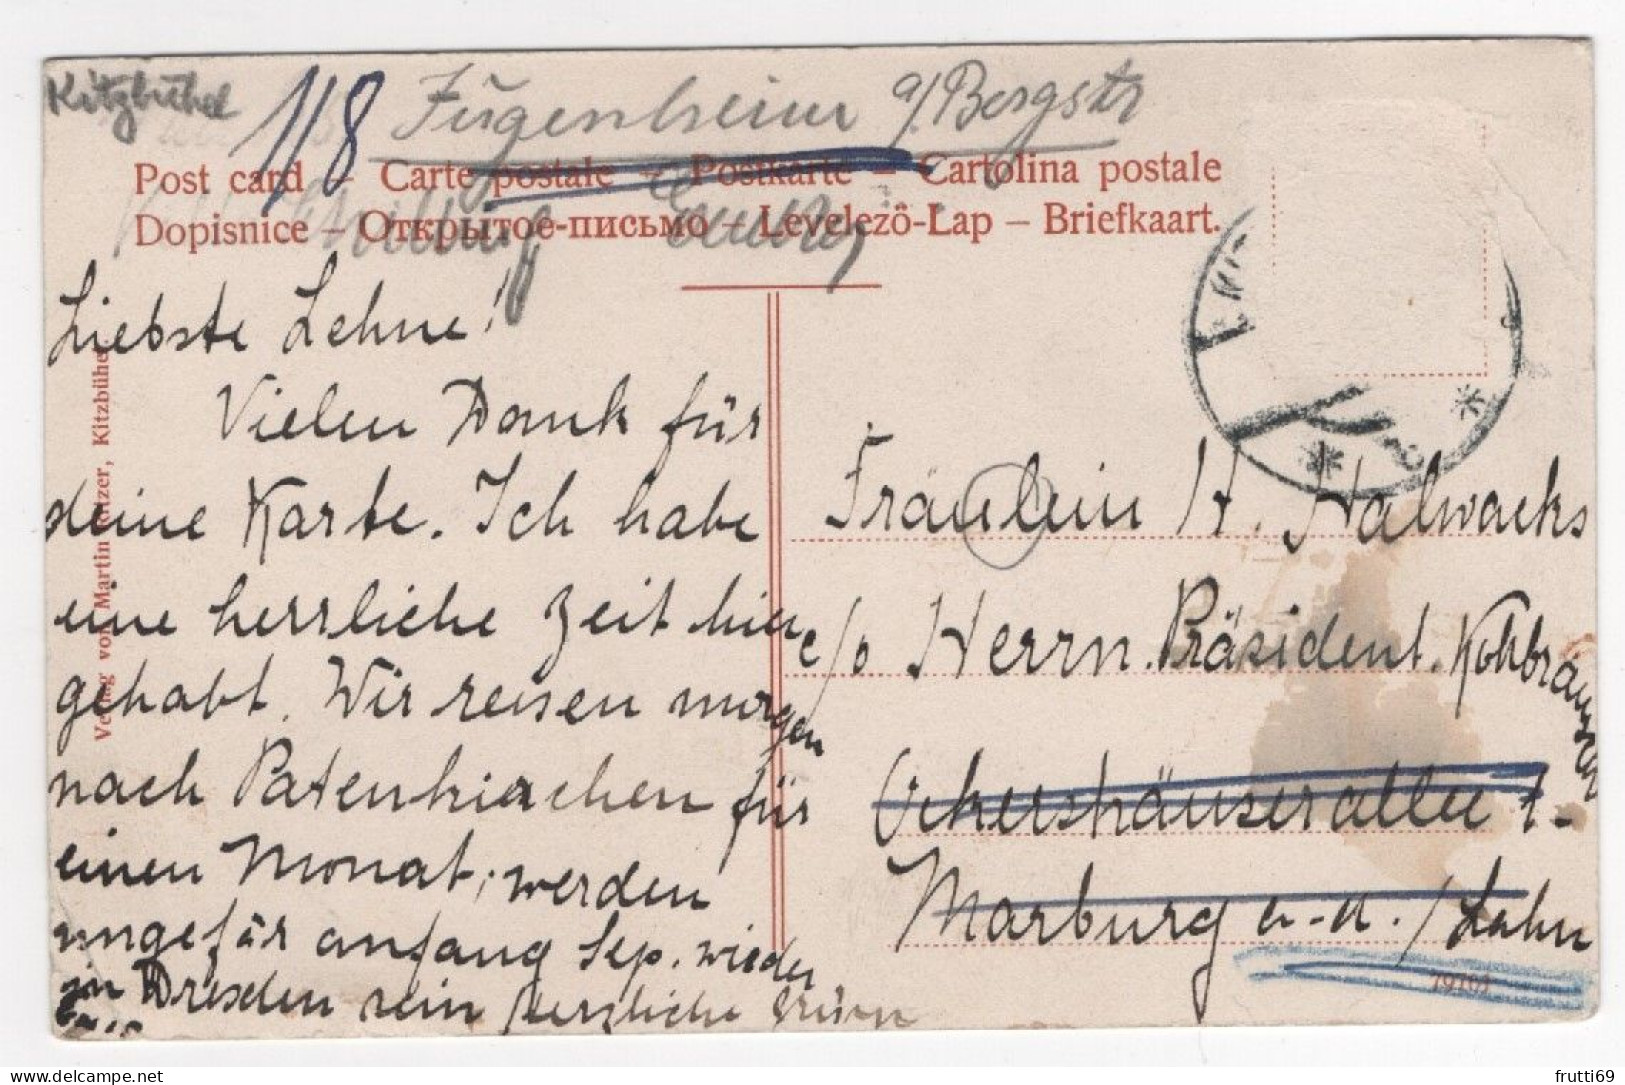 Kitzbühel
118
Jugenheim a/Bergstr
Post card – Carte postale – Postkarte – Cartolina postale
Dopisnice – Открытое-письмо – Levelezõ-Lap – Briefkaart.
Liebste Lehne!
Vielen Dank für
deine Karte. Ich habe
eine herrliche Zeit hier
gehabt. Wir reisen morgen
nach Patenkirchen für
einen Monat; werden
ungefär anfang Sep. wieder
in Dresden sein herzliche Grüsse
Verlag von Martin Ritzer, Kitzbühel
Fräulein H. Halwachs
c/o Herrn Präsident Kohbrausser
Ockershäuserallee 1.
Marburg a.d./Lahn
19101
frutti69